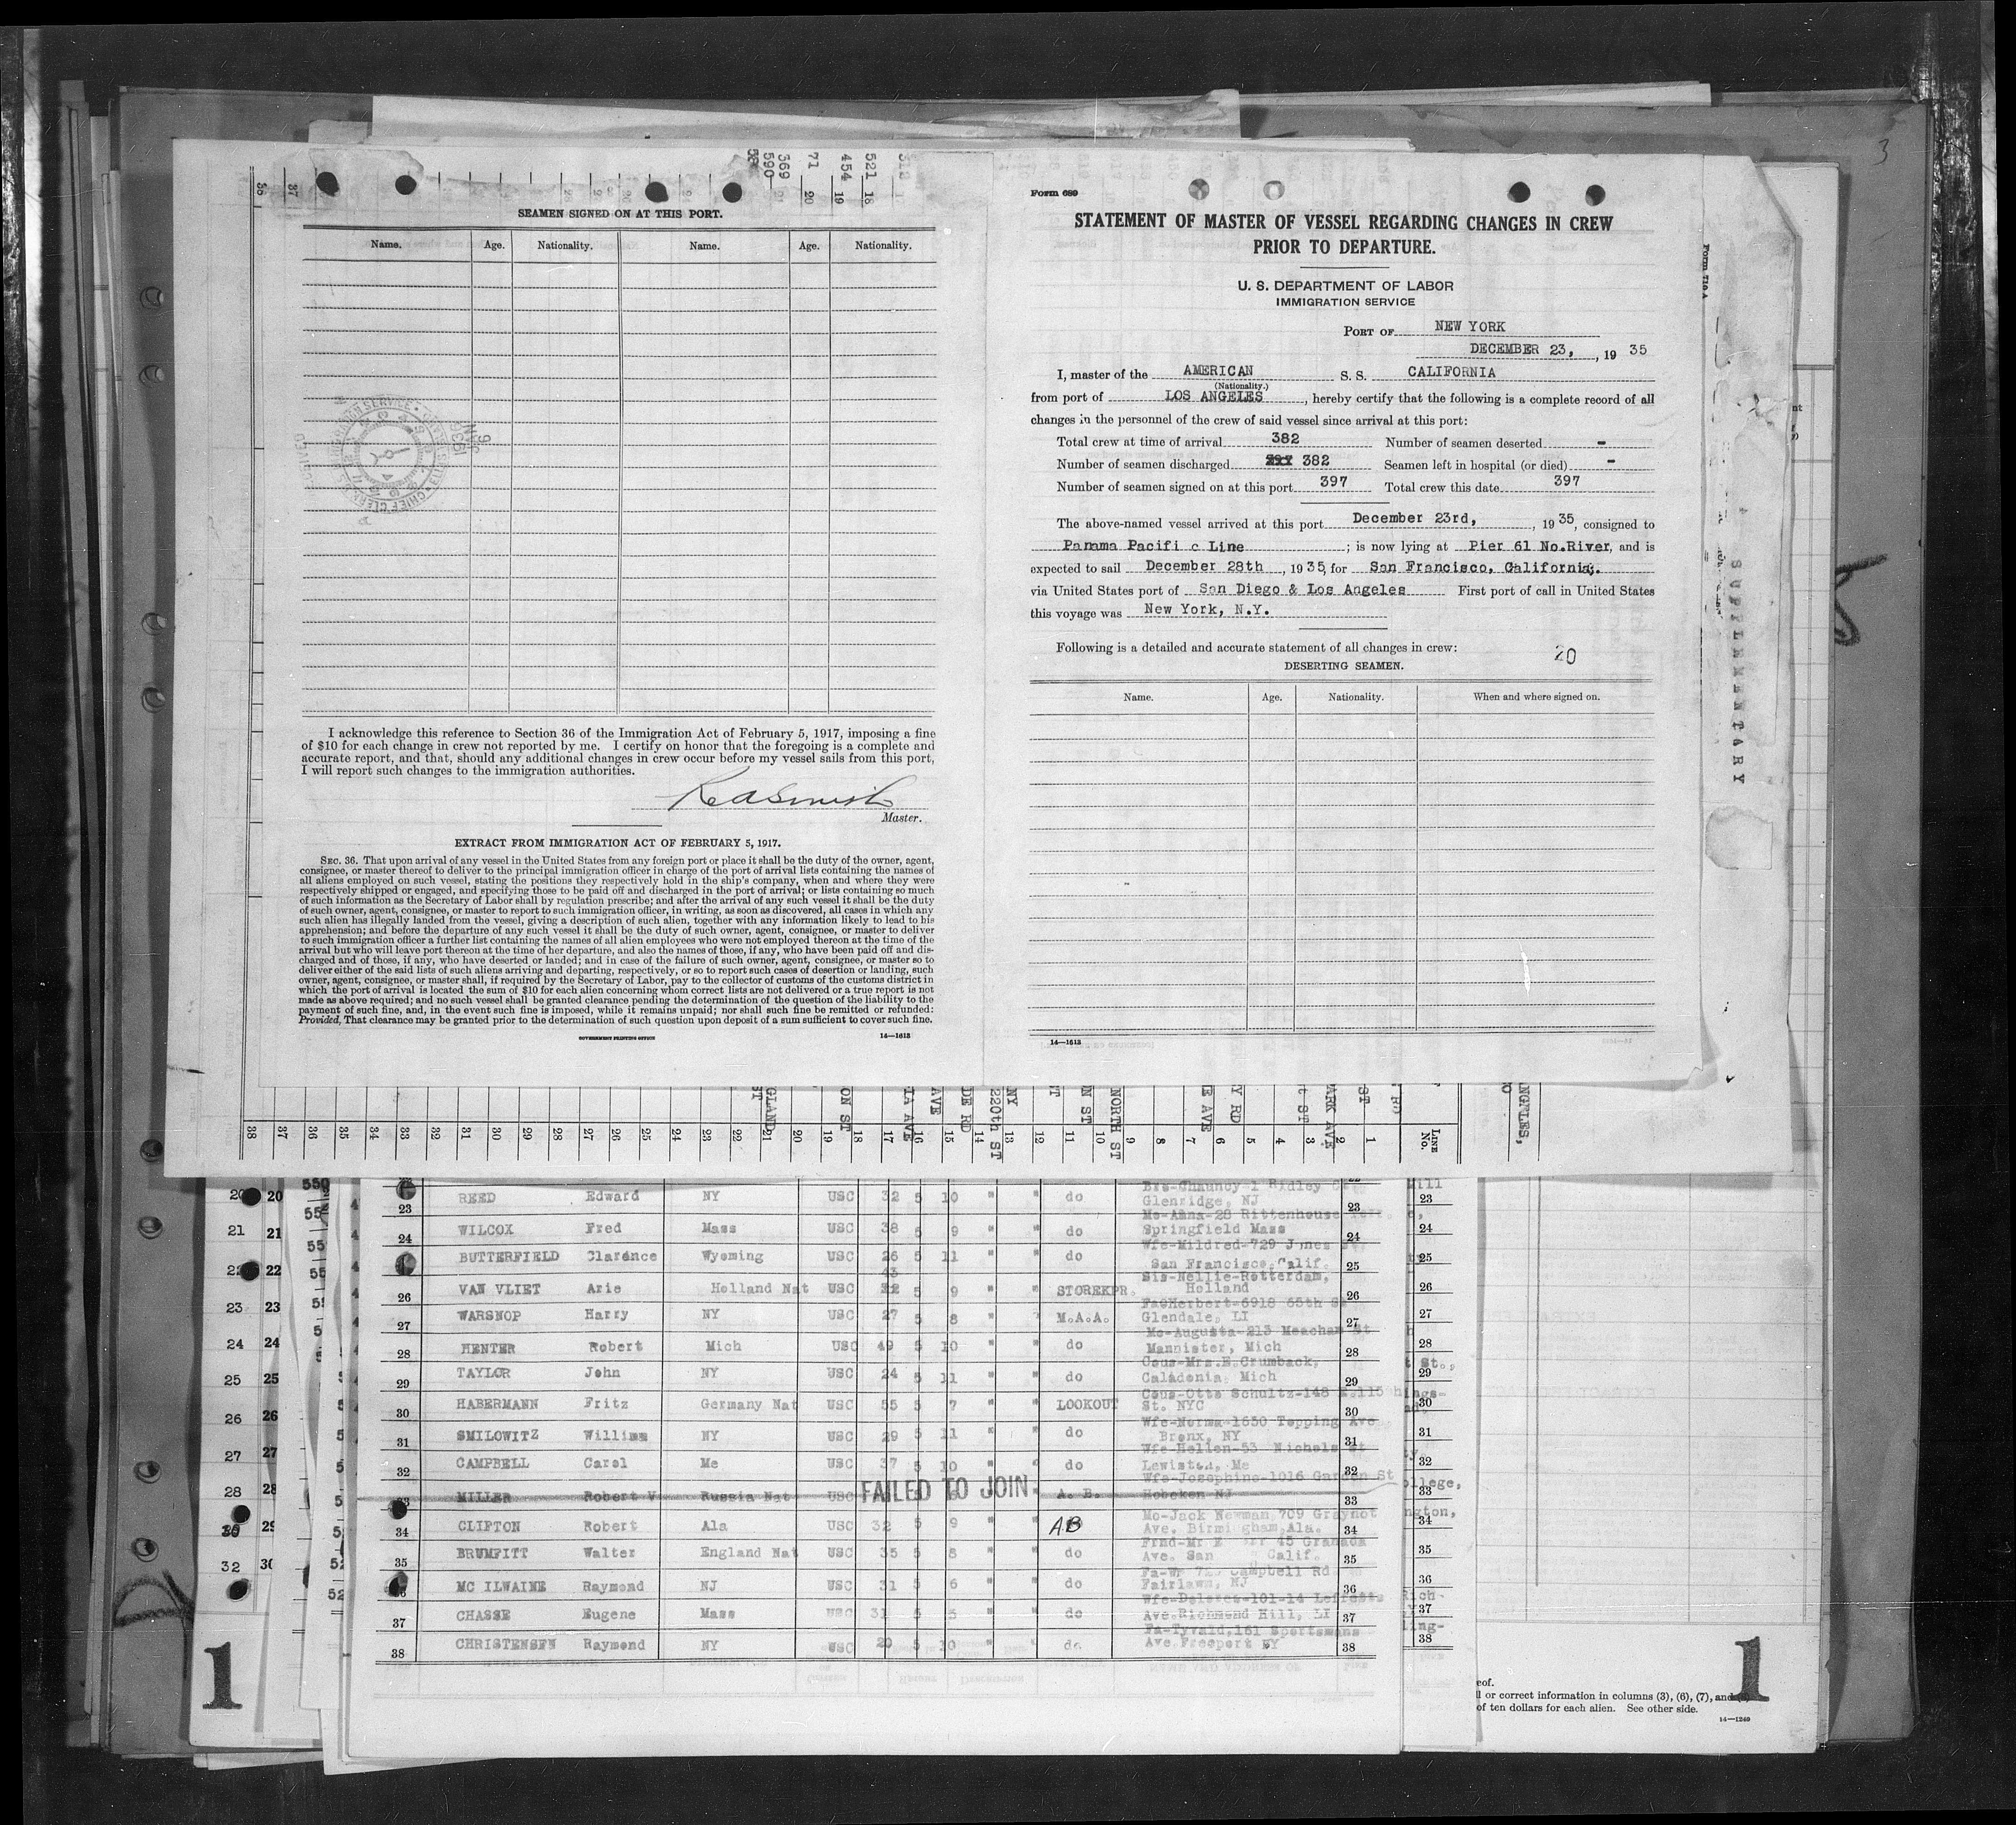 3
SEAMEN SIGNED ON AT THIS PORT.
Name. Age. Nationality. Name. Age. Nationality.
I acknowledge this reference to Section 36 of the Immigration Act of February 5, 1917, imposing a fine
of $10 for each change in crew not reported by me. I certify on honor that the foregoing is a complete and
accurate report, and that, should any additional changes in crew occur before my vessel sails from this port,
I will report such changes to the immigration authorities.
Master.
EXTRACT FROM IMMIGRATION ACT OF FEBRUARY 5, 1917.
SEC. 36. That upon arrival of any vessel in the United States from any foreign port or place it shall be the duty of the owner, agent,
consignee, or master thereof to deliver to the principal immigration officer in charge of the port of arrival lists containing the names of
all aliens employed on such vessel, stating the positions they respectively hold in the ship's company, when and where they were
respectively shipped or engaged, and specifying those to be paid off and discharged in the port of arrival; or lists containing so much
of such information as the Secretary of Labor shall by regulation prescribe; and after the arrival of any such vessel it shall be the duty
of such owner, agent, consignee, or master to report to such immigration officer, in writing, as soon as discovered, all cases in which any
such alien has illegally landed from the vessel, giving a description of such alien, together with any information likely to lead to his
apprehension; and before the departure of any such vessel it shall be the duty of such owner, agent, consignee, or master to deliver
to such immigration officer a further list containing the names of all alien employees who were not employed thereon at the time of the
arrival but who will leave port thereon at the time of her departure, and also the names of those, if any, who have been paid off and dis-
charged and of those, if any, who have deserted or landed; and in case of the failure of such owner, agent, consignee, or master so to
deliver either of the said lists of such aliens arriving and departing, respectively, or so to report such cases of desertion or landing, such
owner, agent, consignee, or master shall, if required by the Secretary of Labor, pay to the collector of customs of the customs district in
which the port of arrival is located the sum of $10 for each alien concerning whom correct lists are not delivered or a true report is not
made as above required; and no such vessel shall be granted clearance pending the determination of the question of the liability to the
payment of such fine, and, in the event such fine is imposed, while it remains unpaid; nor shall such fine be remitted or refunded:
Provided, That clearance may be granted prior to the determination of such question upon deposit of a sum sufficient to cover such fine.
GOVERNMENT PRINTING OFFICE 14—1613
Form 689
STATEMENT OF MASTER OF VESSEL REGARDING CHANGES IN CREW
PRIOR TO DEPARTURE.
U. S. DEPARTMENT OF LABOR
IMMIGRATION SERVICE
PORT OF NEW YORK
DECEMBER 23, , 19 35
I, master of the AMERICAN S. S. CALIFORNIA
(Nationality.)
from port of LOS ANGELES , hereby certify that the following is a complete record of all
changes in the personnel of the crew of said vessel since arrival at this port:
Total crew at time of arrival 382 Number of seamen deserted -
Number of seamen discharged 382 Seamen left in hospital (or died) -
Number of seamen signed on at this port 397 Total crew this date 397
The above-named vessel arrived at this port December 23rd, , 19 35, consigned to
Panama Pacifi c Line ; is now lying at Pier 61 No.River, and is
expected to sail December 28th , 19 35, for San Francisco, California;.
via United States port of San Diego & Los Angeles First port of call in United States
this voyage was New York, N.Y.
Following is a detailed and accurate statement of all changes in crew: 20
DESERTING SEAMEN.
Name. Age. Nationality. When and where signed on.
14—1613
Form 719 A
SUPPLEMENTARY
38 37 36 35 34 33 32 31 30 29 28 27 26 25 24 23 22 21 20 19 18 17 16 15 14 13 12 11 10 9 8 7 6 5 4 3 2 1 LINE No.
REED Edward NY USC 32 5 10 " " do Glenridge, NJ
23 Mo-Anna-28 Rittenhouse 23
WILCOX Fred Mass USC 38 5 9 " " do Springfield Mass
24 Wfe-Mildred-729 Jones 24
BUTTERFIELD Clarence Wyoming USC 26 5 11 " " do San Francisco, Calif. 25
Sis-Nellie-Rotterdam,
26 VAN VLIET Arie Holland Nat USC 5 9 " " STOREKPR. Holland 26
Herbert-6918 65th St
27 WARSNOP Harry NY USC 27 5 8 " " M.A.A. Glendale, LI 27
Mo-Augusta-213 Meacham St
28 HENTER Robert Mich USC 49 5 10 " " do Mannister, Mich 28
Cous-Mrs.E.Crumback,
29 TAYLOR John NY USC 24 5 11 " " do Caladonia, Mich 29
Cous-Otto Schultz-148 E.115
30 HABERMANN Fritz Germany Nat USC 55 5 7 " " LOOKOUT St. NYC 30
Wfe-Norma-1650 Topping Ave
31 SMILOWITZ William NY USC 29 5 11 " " do Bronx, NY 31
Wfe-Hellen-53 Nichols St
32 CAMPBELL Carol Me USC 37 5 10 " " do Lewiston, Me 32
Wfe-Josephine-1016 Garden St
33 MILLER Robert V Russia Nat USC FAILED TO JOIN A. B. Hoboken NJ 33
Mo-Jack Newman 709 Graynot
34 CLIPTON Robert Ala USC 32 5 9 " " AB Ave. Birmingham, Ala. 34
45 Granada
35 BRUMFITT Walter England Nat USC 35 5 8 " " do Ave. San Calif. 35
Campbell Rd
MC ILWAINE Raymond NJ USC 31 5 6 " " do Fairlawn, NJ 36
Wfe-Delores-101-14 Lefferts
37 CHASSE Eugene Mass USC 31 5 5 " " do Ave.Richmond Hill, LI 37
Fa-Tyvald,161 Sportsmans
38 CHRISTENSEN Raymond NY USC 20 5 10 " " do Ave Freeport NY 38
1
1
eof.
l or correct information in columns (3), (6), (7), and
of ten dollars for each alien. See other side.
14—1240